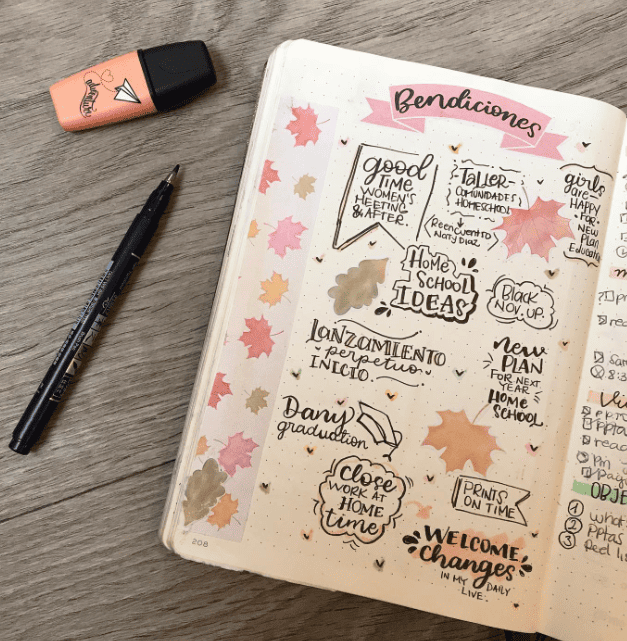 Bendiciones
good
TIME
WOMEN'S
MEETING
& AFTER.
TALLER
COMUNIDADES
HOMESCHOOL
REENCUENTRO
NATY DIAZ
girls
are
HAPPY
FOR
NEW
PLAN
EDUCATION
HOME
SCHOOL
IDEAS
BLACK
NOV. UP.
LANZAMIENTO
perpetuo
INICIO.
new
PLAN
FOR NEXT
YEAR
HOME
SCHOOL
Dany
graduation
close
WORK AT
HOME
time
PRINTS
ON TIME
WELCOME
changes
IN MY DAILY
LIVE.
208
OBJE
1 what
2 PPtas
3 Red li